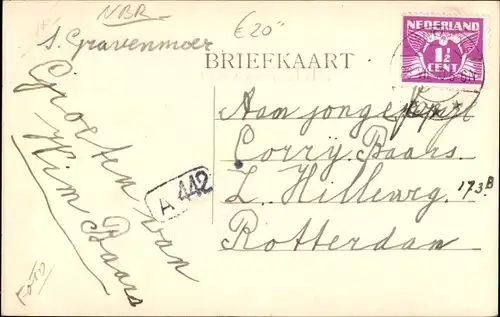 NBR
€20"
s. Gravenmoer
BRIEFKAART
NEDERLAND
1½
CENT
Groeten van
Wim Baars
A 442
Aan jongejufr
Corry Baars
L. Hilleweg 173B
Rotterdan
FOTO